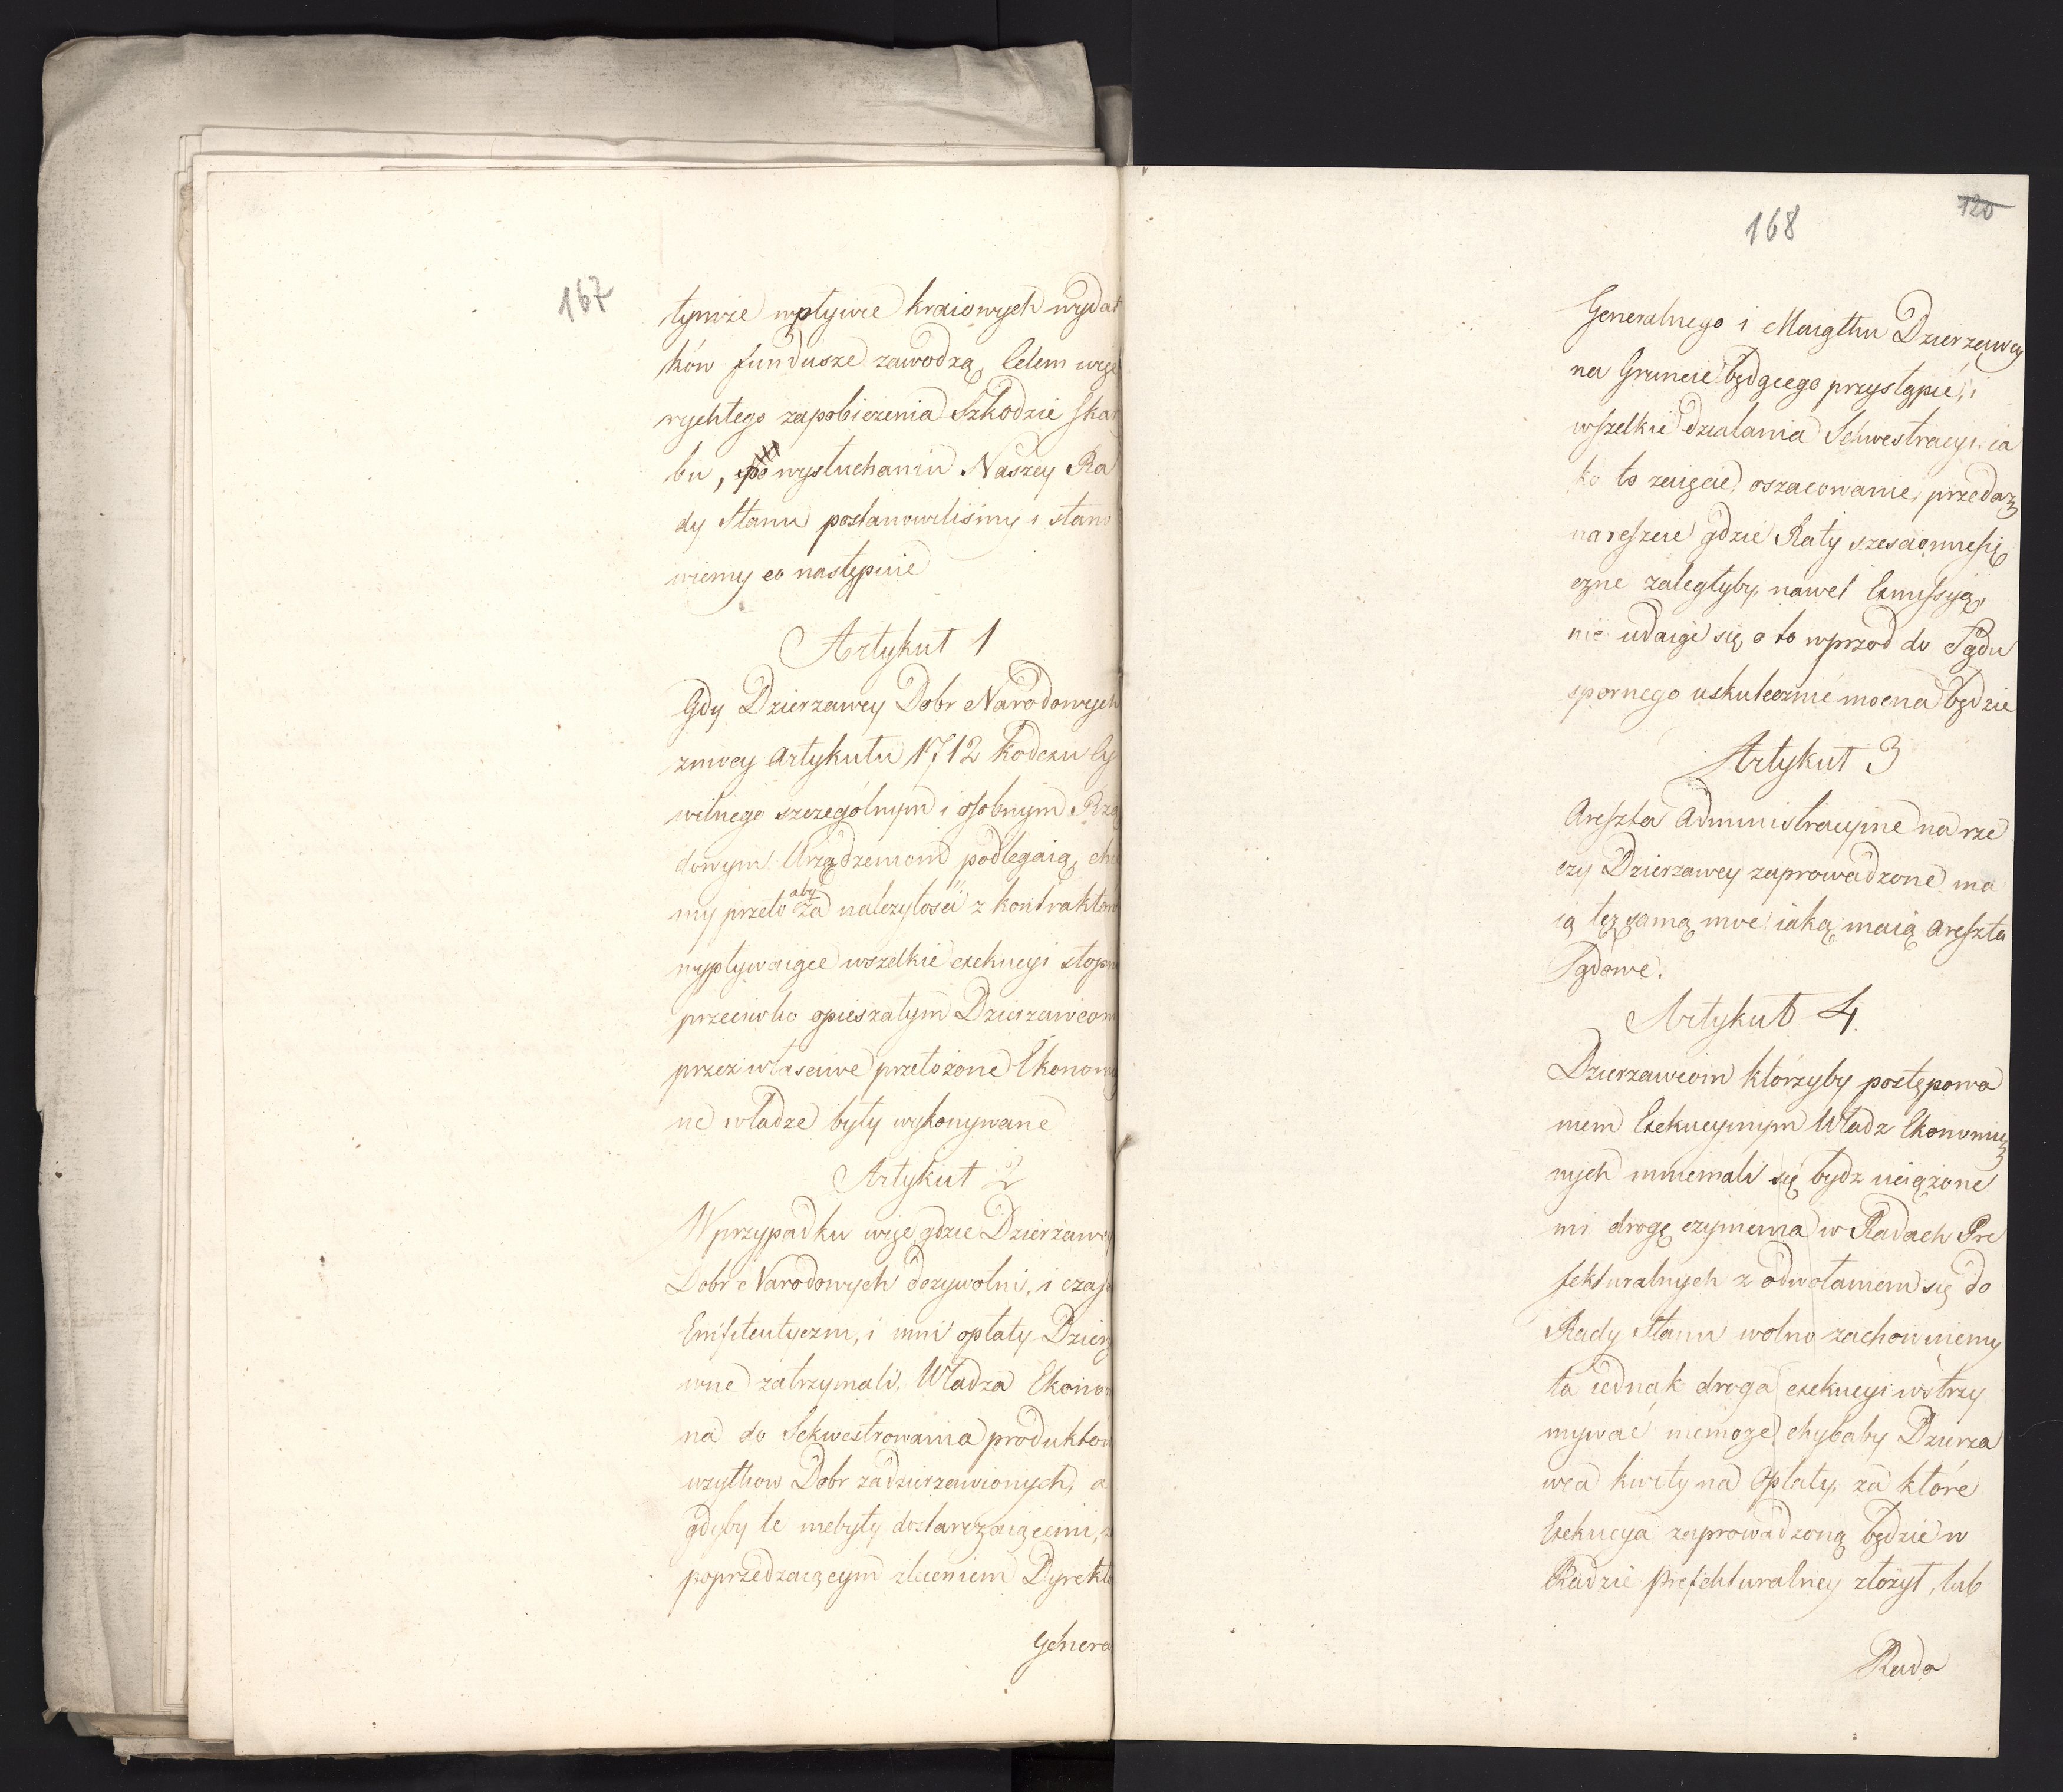 167
tymże wpływie kraiowych wydat
ków fundusze zawodzą, Celem więc
rychłego zapobieżenia Szkodzie Skar
bu, po wysłuchaniu Naszey Ra
dy Stanu postanowiliśmy i stano
wiemy co następuie
Artykuł 1
Gdy Dzierzawcy Dobr Narodowych
zmocy Artykułu 1712 Kodexu Cy
wilnego szczególnym i osobnym Rzą
dowym Urządzeniom podlegaią, chce
my przeto aby za należytości z kontraktów
wypływaiące wszelkie exekucyi stopnie
przeciwko opieszałym Dzierzawcom
przez właściwe przełożone Ekonomi
ne władze były wykonywane
Artykuł 2
W przypadku więc gdzie Dzierżawcy
Dobr Narodowych dozywotni, i czaso
Emfiteutyczni, i inni opłaty Dzierż
wne zatrzymali, Władza Ekonom
na do Sekwestrowania produktów
użytkow Dobr zadzierzawionych, a
gdyby te niebyły dostarczaiącemi, z
poprzedzaiącym zleceniem Dyrekto
Genera
168
120
Generalnego i Maiątku Dzierzawcy
na Gruncie będącego przystąpić, i
wszelkie działania Sekwestracyi ia
ko to zaięcie, oszacowanie, przedaż
nareszcie gdzie Raty sześciomiesię
czne zaległyby, nawet Exmissyą,
nie udaiąc się o to wprzod do Sądu
spornego uskutecznić mocna będzie
Artykuł 3
Areszta Administracyine na rze
czy Dzierzawcy zaprowadzone ma
ią tęż samą moc iaką maią Areszta
Sądowe.
Artykuł 4.
Dzierzawcom którzyby postępowa
niem Exekucyinym Władz Ekonomicz
nych mniemali się bydz uciążone
mi drogę czynienia w Radach Pre
fekturalnych z odwołaniem się do
Rady Stanu wolno zachowuiemy
ta iednak droga exekucyi wstrzy
mywać niemoże, chybaby Dzierza
wca kwity na Opłaty, za które
Exekucya zaprowadzoną będzie w
Radzie Prefekturalney złożył, lub
Rada